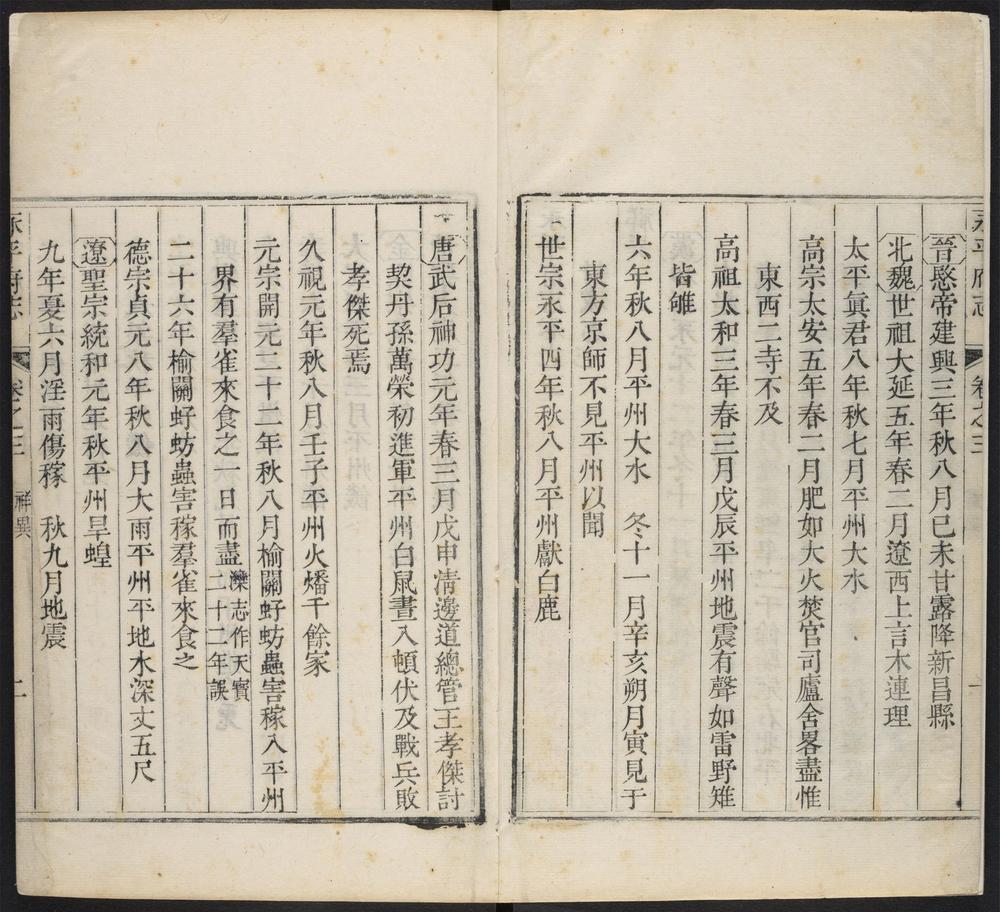 永平府志
卷之三
一
晉愍帝建興三年秋八月己未甘露降新昌縣
北魏世祖大延五年春二月遼西上言木連理
太平眞君八年秋七月平州大水
高宗太安五年春二月肥如大火焚官司廬舍畧盡惟
東西二寺不及
高祖太和三年春三月戊辰平州地震有聲如雷野雉
皆雊
六年秋八月平州大水　冬十一月辛亥朔月寅見于
東方京師不見平州以聞
世宗永平四年秋八月平州獻白鹿
唐武后神功元年春三月戊申清邊道總管王孝傑討
契丹孫萬榮初進軍平州白鼠晝入頓伏及戰兵敗
孝傑死焉
久視元年秋八月壬子平州火燔千餘家
元宗開元二十二年秋八月榆關虸蚄蟲害稼入平州
界有羣雀來食之一日而盡灤志作天寶二十二年誤
二十六年榆關虸蚄蟲害稼羣雀來食之
德宗貞元八年秋八月大雨平州平地水深丈五尺
遼聖宗統和元年秋平州旱蝗
九年夏六月淫雨傷稼　秋九月地震
永平府志
卷之三
祥異
二